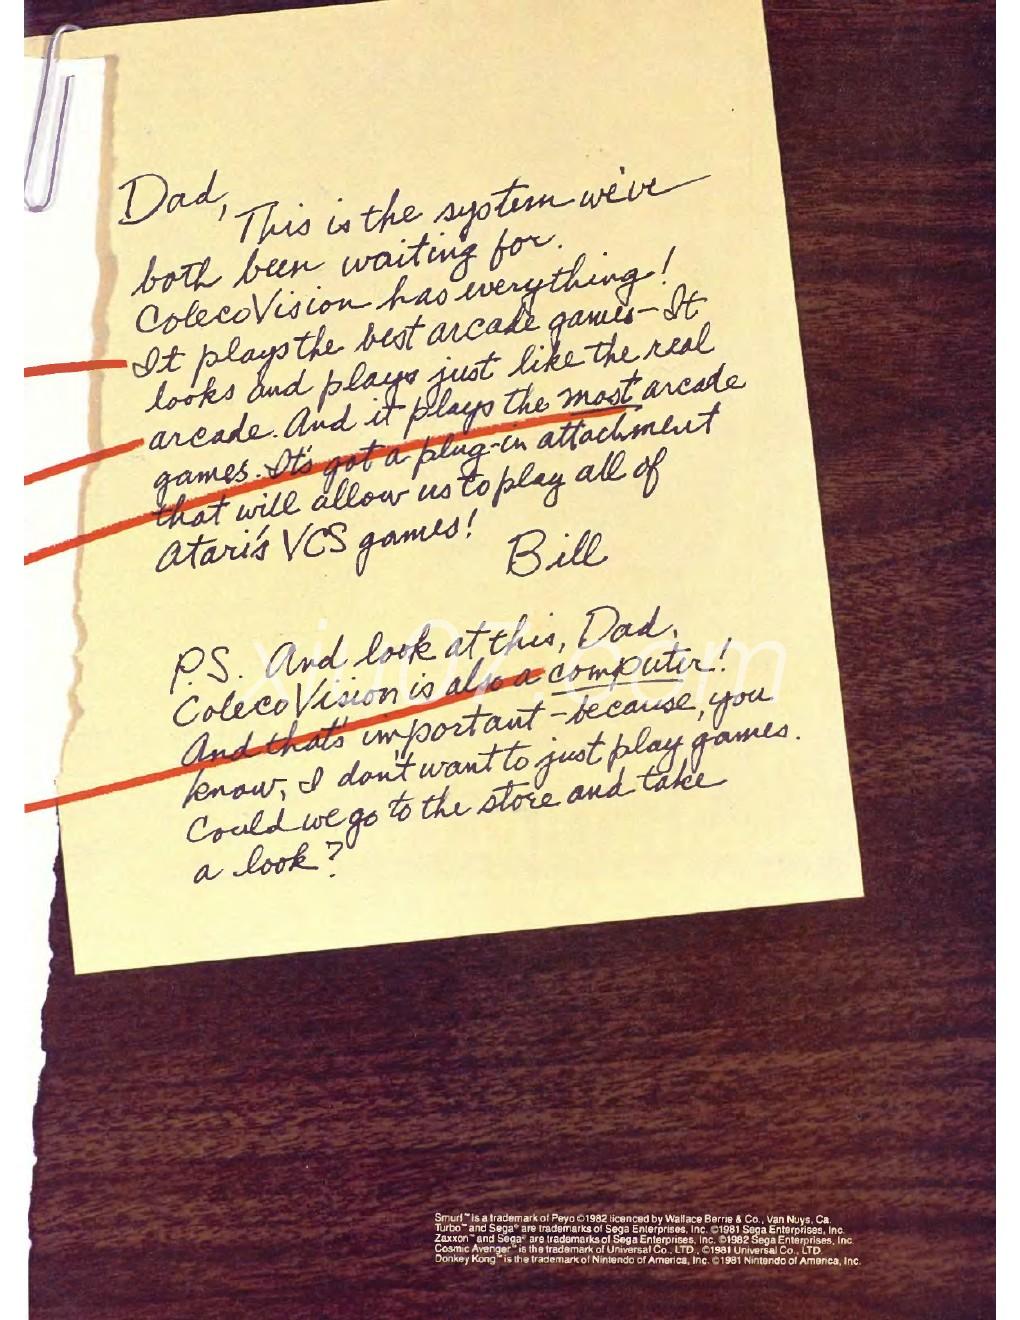 Dad,
This is the system we've
both been waiting for.
ColecoVision has everything!
It plays the best arcade games-It
looks and plays just like the real
arcade. And it plays the most arcade
games. It's got a plug-in attachment
that will allow us to play all of
Atari's VCS games!
Bill
P.S. And look at this, Dad.
ColecoVision is also a computer!
And that's important - because, you
know, I don't want to just play games.
Could we go to the store and take
a look?
Smurf™ is a trademark of Peyo ©1982 licenced by Wallace Berrie & Co., Van Nuys, Ca.
Turbo™ and Sega® are trademarks of Sega Enterprises, Inc. ©1981 Sega Enterprises, Inc.
Zaxxon™ and Sega® are trademarks of Sega Enterprises, Inc. ©1982 Sega Enterprises, Inc.
Cosmic Avenger™ is the trademark of Universal Co., LTD., ©1981 Universal Co., LTD
Donkey Kong™ is the trademark of Nintendo of America, Inc. ©1981 Nintendo of America, Inc.